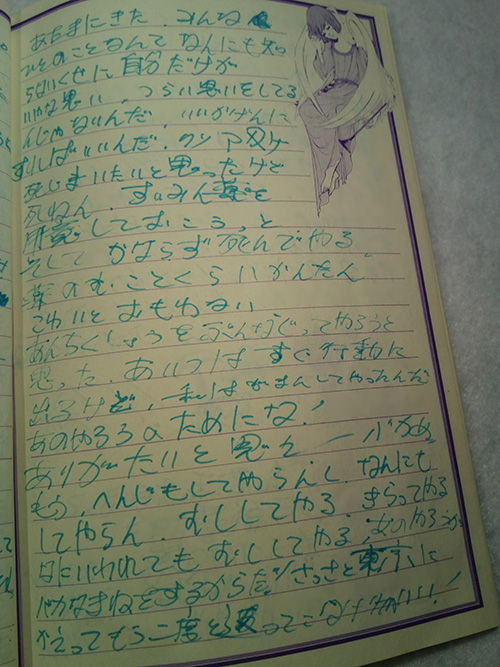 あたまにきた．みんな
ひとのことなんてなんにも知
らないくせに自分だけが
いやな思い、つらい思いをしてる
んじゃないんだ．いいかげんに
すればいいんだ．
死しまいたいと思ったけど
死ねん．すいみん薬を
用意しておこう、と
そして かならず死んでやる
薬のむことくらいかんたん
こわいとおもわない
あんちくしょうをぶんなぐってやろうと
思った．あいつはすぐ行動に
出るけど、私はがまんしてやったんだ
あのやろうのためにな！
ありがたいと思え ーバカめ
もう、へんじもしてやらんし、なんにも
してやらん．むししてやる．きらってやる
なにいわれてもむししてやる，女のやろうが
バカなまねをするからだ！さっさと東京に
かえってもう二度と